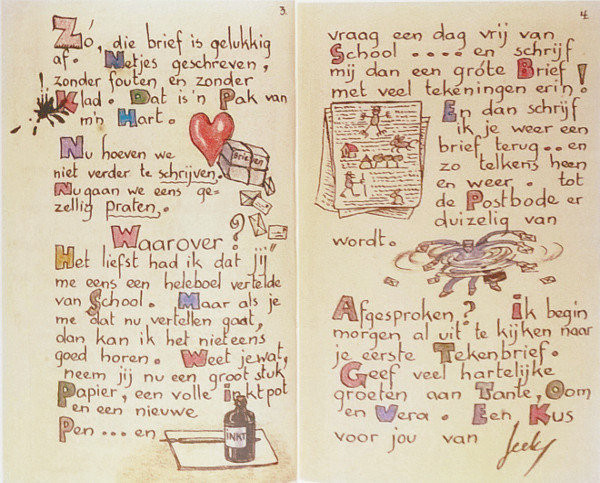 3.
Zó, die brief is gelukkig
af. Netjes geschreven,
zonder fouten en zonder
Klad. Dat is 'n Pak van
m'n Hart.
BRIEVEN
Nu hoeven we
niet verder te schrijven.
Nu gaan we eens ge-
zellig praten.
Waarover?
Het liefst had ik dat jij
me eens een heleboel vertelde
van School. Maar als je
me dat nu vertellen gaat,
dan kan ik het niet eens
goed horen. Weet je wat,
neem jij nu een groot stuk
Papier, een volle inktpot
en een nieuwe
Pen... en
INKT
4.
vraag een dag vrij van
School .... en schrijf
mij dan een gróte Brief
met veel tekeningen erin!
En dan schrijf
ik je weer een
brief terug.. en
zo telkens heen
en weer. tot
de Postbode er
duizelig van
wordt.
Afgesproken? ik begin
morgen al uit te kijken naar
je eerste Tekenbrief.
Geef veel hartelijke
groeten aan Tante, Oom
en Vera. Een Kus
voor jou van